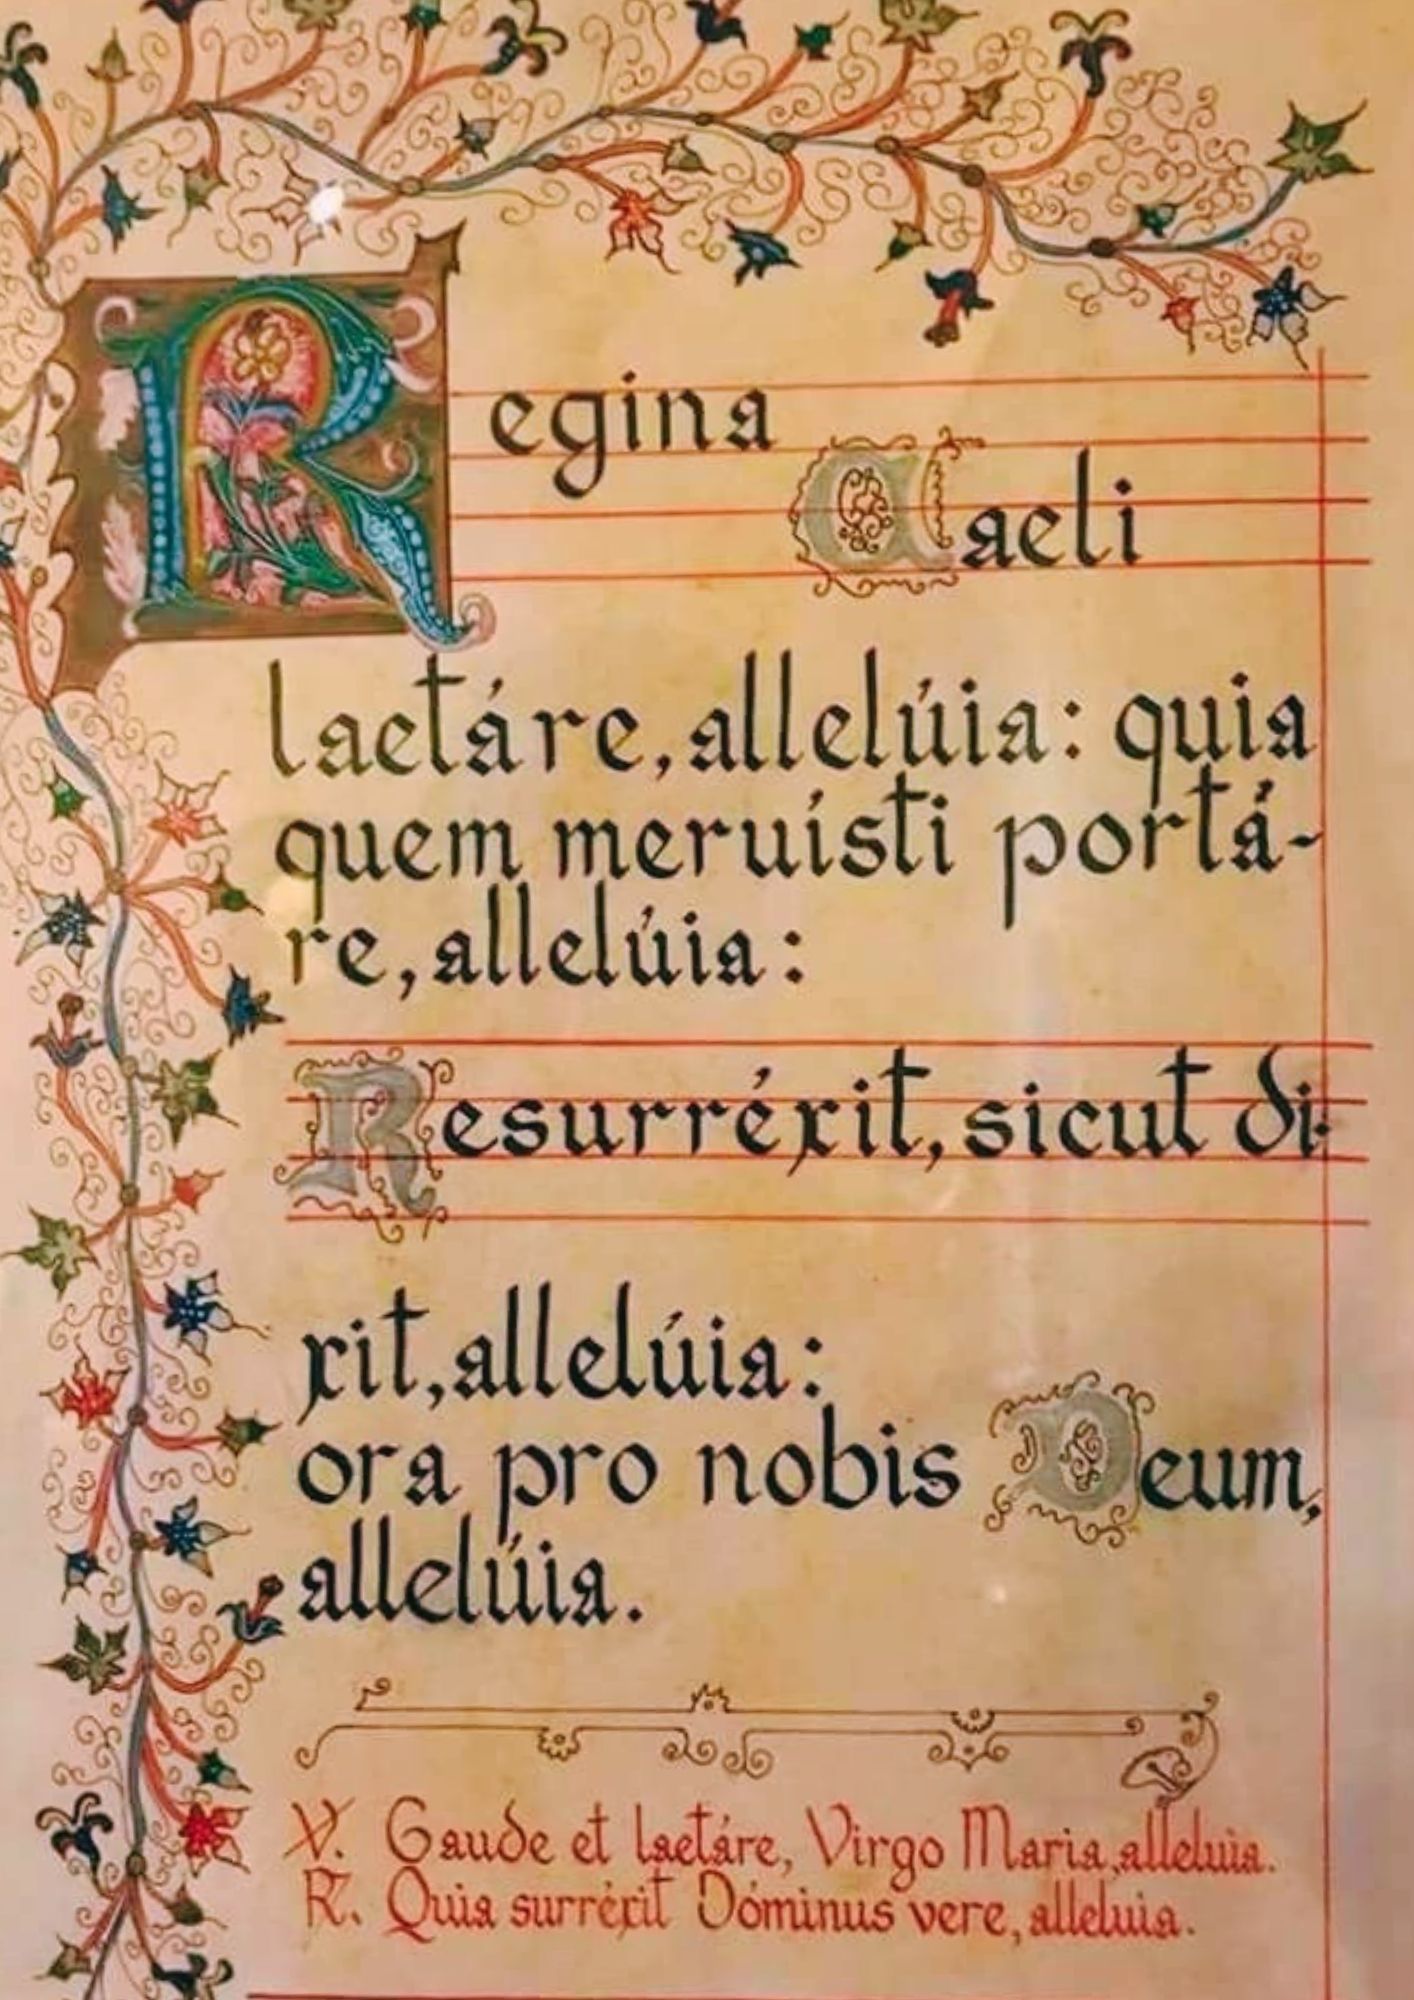 Regina
Caeli
laetáre, allelúia: quia
quem meruísti portá-
re, allelúia:
Resurréxit, sicut di-
xit, allelúia:
ora pro nobis Deum,
allelúia.
℣. Gaude et laetáre, Virgo Maria, alleluia.
℟. Quia surréxit Dóminus vere, alleluia.